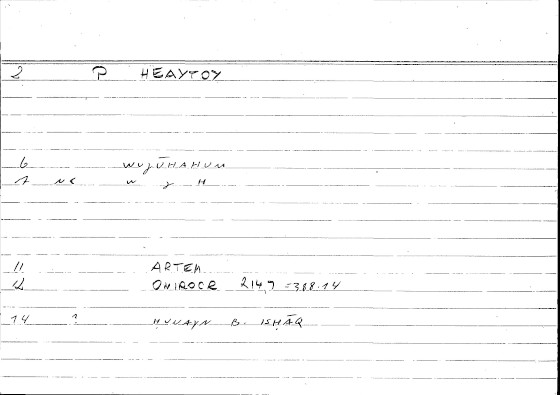 2 P HEAYTOY
6 WUǦŪHAHUM
7 NK W Ǧ H
11 ARTEM
12 ONIROCR 214,7 = 388.14
14 ? ḤUNAYN B. ISḤĀQ